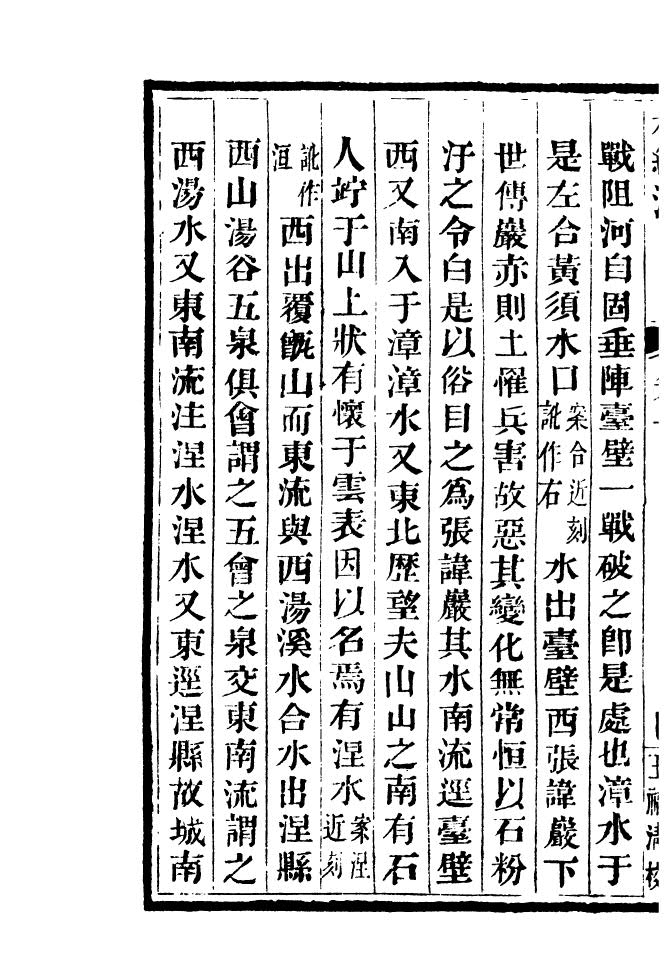 戰阻河自固垂陣臺壁一戰破之卽是處也漳水于
是左合黃須水口案合近刻訛作右水出臺壁西張諱巖下
世傳巖赤則土罹兵害故惡其變化無常恒以石粉
汙之令白是以俗目之爲張諱巖其水南流逕臺壁
西又南入于漳漳水又東北歷望夫山山之南有石
人竚于山上狀有懷于雲表因以名焉有涅水案涅近刻
訛作洹西出覆甑山而東流與西湯溪水合水出涅縣
西山湯谷五泉俱會謂之五會之泉交東南流謂之
西湯水又東南流注涅水涅水又東逕涅縣故城南